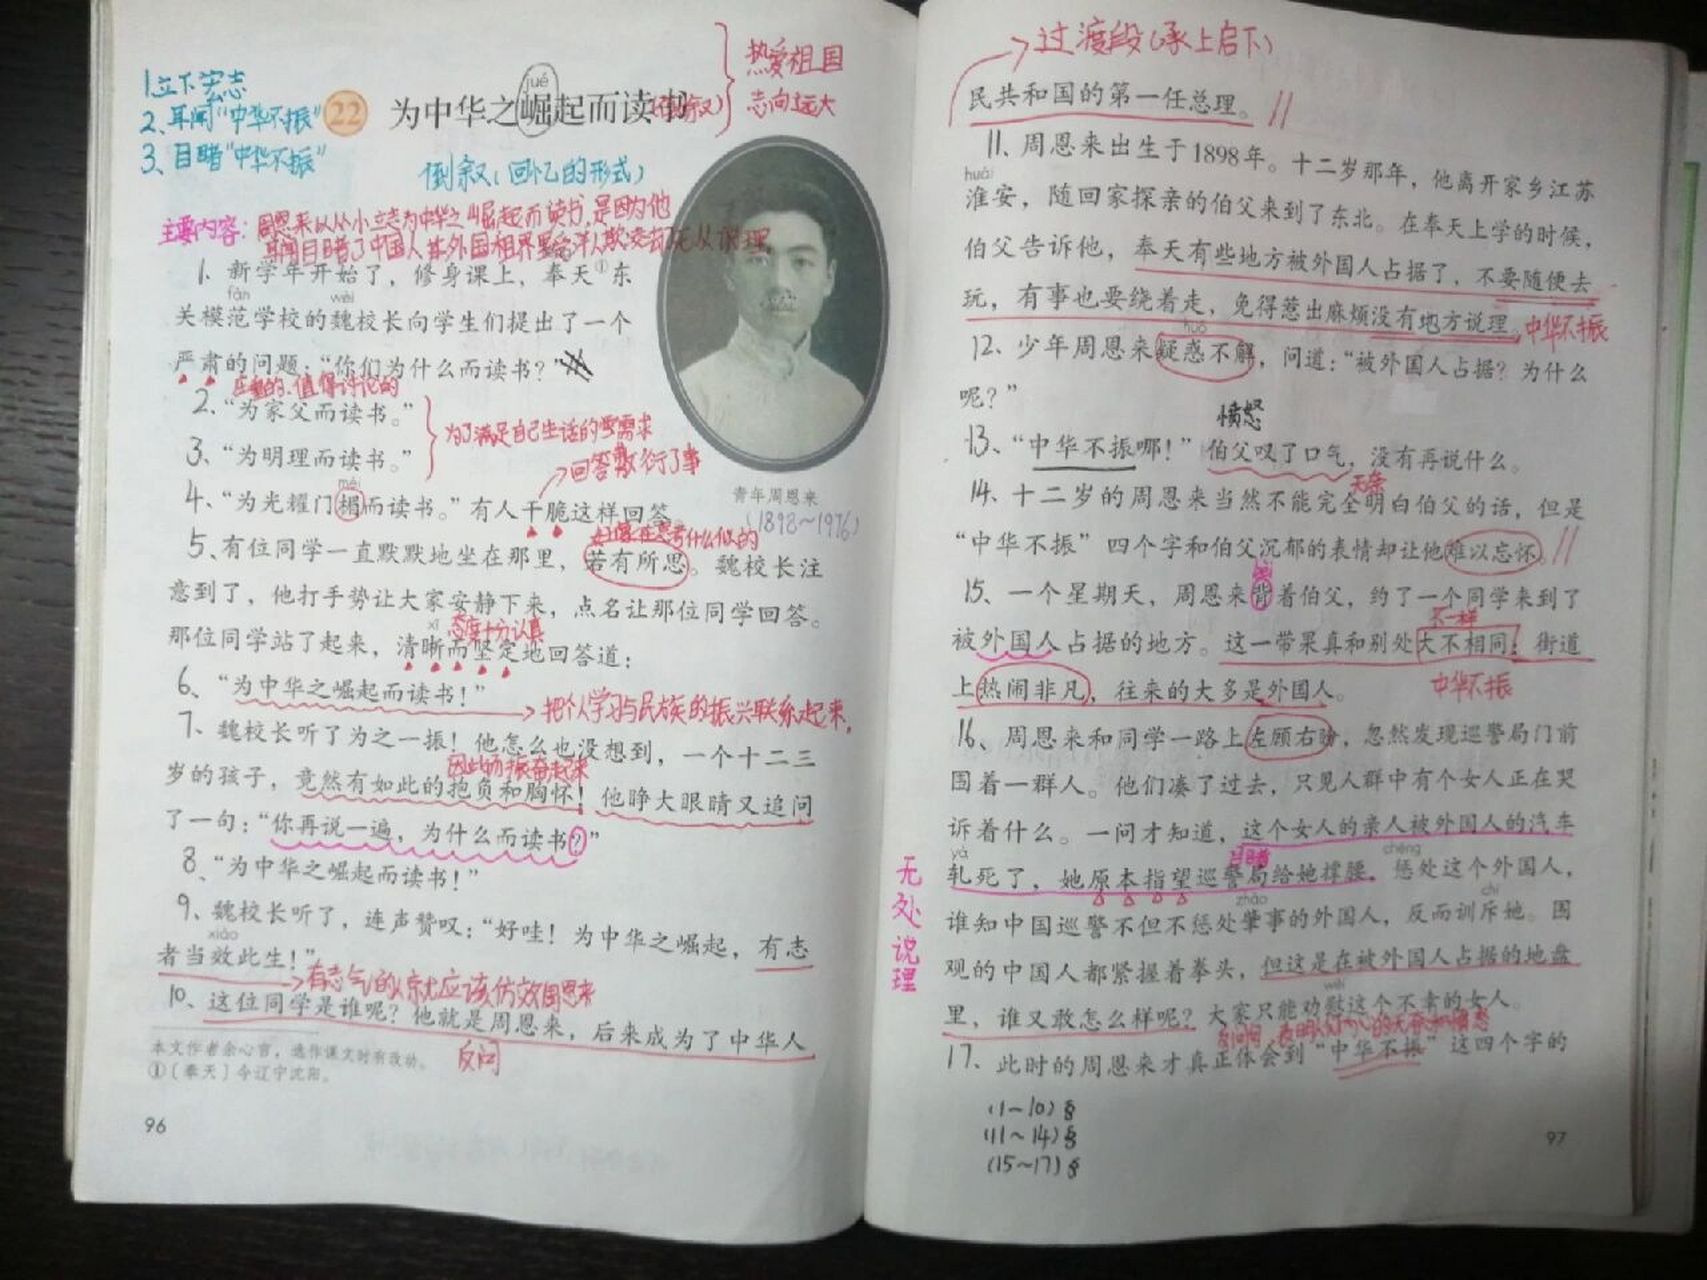 1立下宏志
2、耳闻“中华不振”
3、目睹“中华不振”
热爱祖国
志向远大
jué
22 为中华之崛起而读书
倒叙(回忆的形式)
主要内容:周恩来从小立志为中华之崛起而读书,是因为他
耳闻目睹了中国人在外国租界里受洋人欺凌却无从说理
1、新学年开始了,修身课上,奉天①东
fàn wèi
关模范学校的魏校长向学生们提出了一个
严肃的问题:“你们为什么而读书?”
庄重的、值得讨论的
2、“为家父而读书。”
为了满足自己生活的需求
3、“为明理而读书。”
回答敷衍了事
méi
4、“为光耀门楣而读书。”有人干脆这样回答。
青年周恩来
(1898~1976)
好像在思考什么似的
5、有位同学一直默默地坐在那里,若有所思。魏校长注
意到了,他打手势让大家安静下来,点名让那位同学回答。
xī 态度十分认真
那位同学站了起来,清晰而坚定地回答道:
6、“为中华之崛起而读书!”
把个人学习与民族的振兴联系起来,
7、魏校长听了为之一振!他怎么也没想到,一个十二三
因此而振奋起来
岁的孩子,竟然有如此的抱负和胸怀!他睁大眼睛又追问
了一句:“你再说一遍,为什么而读书?”
8、“为中华之崛起而读书!”
9、魏校长听了,连声赞叹:“好哇!为中华之崛起,有志
xiào
者当效此生!”
有志气的人就应该仿效周恩来
10、这位同学是谁呢?他就是周恩来,后来成为了中华人
反问
本文作者余心言,选作课文时有改动。
①〔奉天〕今辽宁沈阳。
96
过渡段(承上启下)
民共和国的第一任总理。
11、周恩来出生于1898年。十二岁那年,他离开家乡江苏
huái
淮安,随回家探亲的伯父来到了东北。在奉天上学的时候,
伯父告诉他,奉天有些地方被外国人占据了,不要随便去
玩,有事也要绕着走,免得惹出麻烦没有地方说理。
中华不振
huò
12、少年周恩来疑惑不解,问道:“被外国人占据?为什么
呢?”
愤怒
13、“中华不振哪!”伯父叹了口气,没有再说什么。
无奈
14、十二岁的周恩来当然不能完全明白伯父的话,但是
“中华不振”四个字和伯父沉郁的表情却让他难以忘怀。
15、一个星期天,周恩来背着伯父,约了一个同学来到了
不一样
被外国人占据的地方。这一带果真和别处大不相同!街道
上热闹非凡,往来的大多是外国人。
中华不振
16、周恩来和同学一路上左顾右盼,忽然发现巡警局门前
围着一群人。他们凑了过去,只见人群中有个女人正在哭
诉着什么。一问才知道,这个女人的亲人被外国人的汽车
yà 目睹 chéng
轧死了,她原本指望巡警局给她撑腰,惩处这个外国人,
zhào chì
谁知中国巡警不但不惩处肇事的外国人,反而训斥她。围
观的中国人都紧握着拳头,但这是在被外国人占据的地盘
wèi
里,谁又敢怎么样呢?大家只能劝慰这个不幸的女人。
17、此时的周恩来才真正体会到“中华不振”这四个字的
无处说理
(1~10)
(11~14)
(15~17)
97